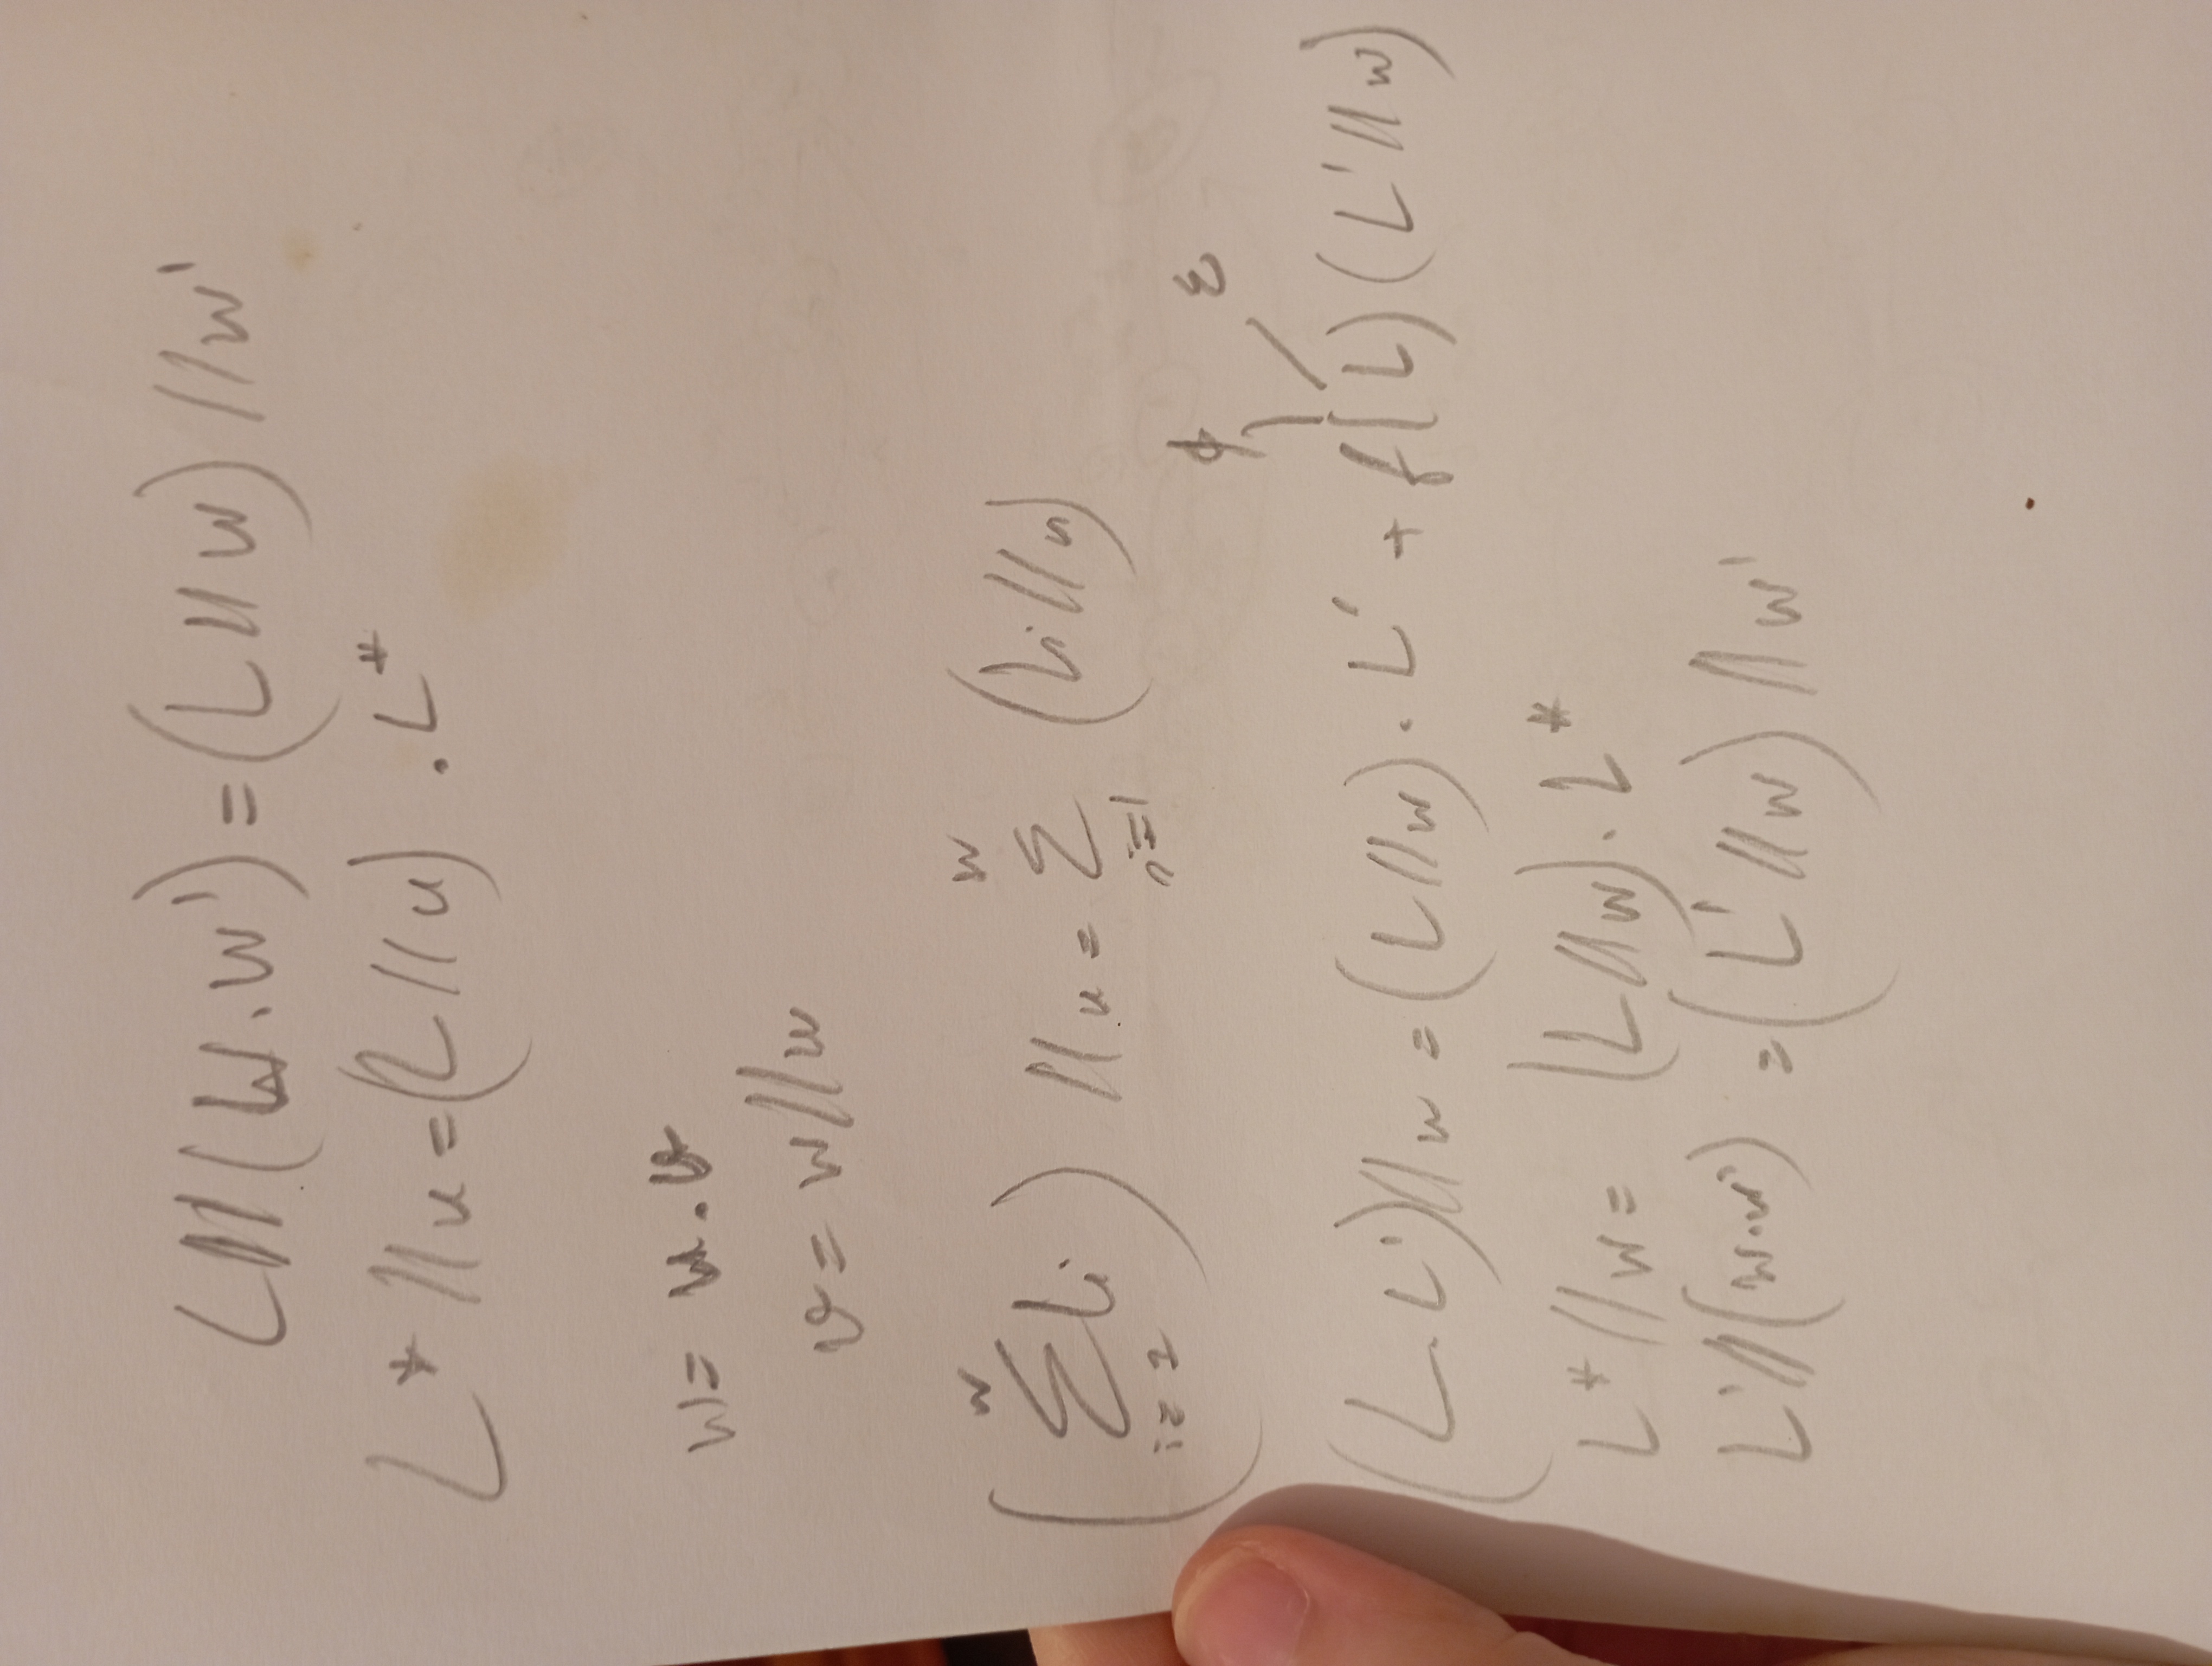 L//(w.w')=(L//w)//w'
L*//u=(L//u).L*
w= u.v
v= w//u
(∑ Li)//u= ∑ (Li//u)
i=1 i=1
ϕ ε
(L.L')//w=(L//w).L'+f(L)(L'//w)
L*//w=(L//w).L*
L'//(w.w')=(L'//w)//w'